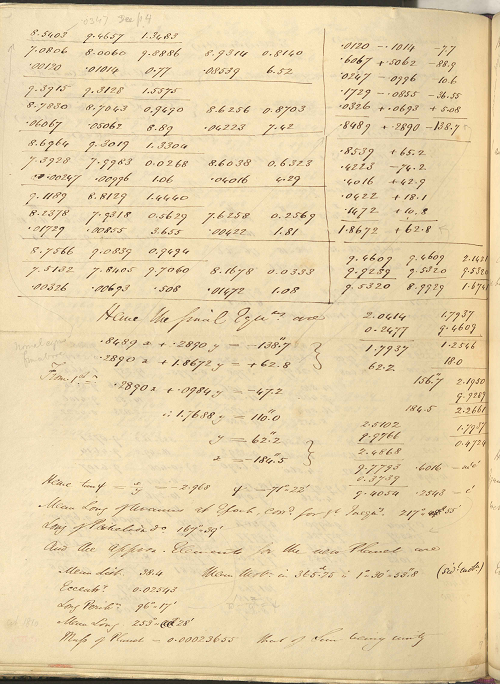 0247
8.5403 9.4657 1.3483
7.0806 8.0060 9.8886 8.9314 0.8140
.00120 .01014 0.77 .08539 6.52
9.3915 9.3128 1.5575
8.7830 8.7043 0.9490 8.6256 0.8703
.06067 .05062 8.89 .04223 7.42
8.6964 9.3019 1.3304
7.3928 7.9983 0.0268 8.6038 0.6323
.00247 .00996 1.06 .04016 4.29
9.1189 8.8129 1.4440
8.2378 7.9318 0.5629 7.6258 0.2569
.01729 .00855 3.655 .00422 1.81
8.7566 9.0839 0.9494
7.5132 7.8405 9.7060 8.1678 0.0333
.00326 .00693 .508 .01472 1.08
.0120 -.1014 -7.7
.6067 +.5062 -88.9
.0247 -.0996 10.6
.1729 -.0855 -36.55
.0326 +.0693 +5.08
.8489 +.2890 -138.7
.8539 +65.2
.4223 -74.2
.4016 +42.9
.0422 +18.1
.1472 +10.8
1.8672 +62.8
9.4609 9.4609 2.1421
9.9289 9.5320 9.5320
9.5320 8.9929 1.6741
Hence the final Equns are
.8489 x + .2890 y = -138".7
.2890 x + 1.8672 y = +62.8
From 1st
.2890 x + .0984 y = -47.2
∴ 1.7688 y = 110".0
y = 62".2
x = -184".5
2.0414 1.7937
0.2477 9.4609
1.7937 1.2546
62.2 18.0
156".7 2.1950
9.9289
184.5 2.2661
2.5102 1.7937
9.9766 0.4724
2.4868
9.7793 .6016
0.3739
9.4054 .2543
Hence = x/y = -2.968 = -71° 22'
Mean Long of Uranus at Epoch, for 217° 55'
Long of Perihelion 167° 39'
And the approx. Elements for the new Planet are
Mean dist. 38.4 Mean in 365.25 is 1° 30' 55".8
Eccenty 0.02543
Long Perihn 96° 17'
Mean Long 253° 28'
Mass of Planet = 0.00023655 that of Sun being unity